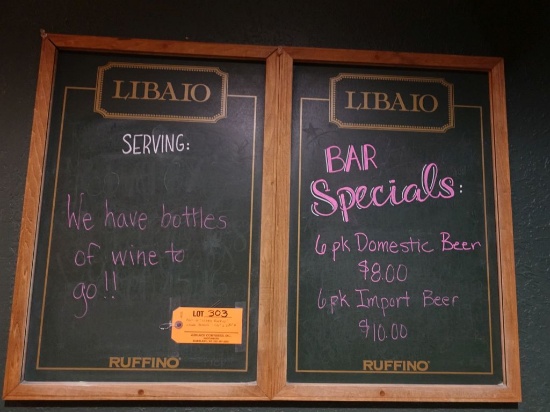 LIBAIO
SERVING:
We have bottles
of wine to
go!!
LOT 303
RUFFINO
LIBAIO
BAR
Specials:
6 pk Domestic Beer
$8.00
6 pk Import Beer
$10.00
RUFFINO